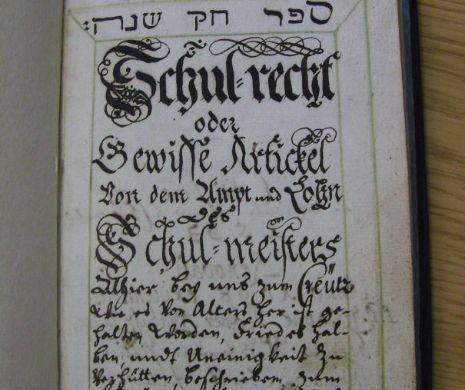 ספר חק שנה:
Schul-recht
oder
Gewisse Artickel
Von dem Ampt und Lohn
des
Schul-meisters
Alhier bey uns zum Creütz
Wie es von Alters her ist ge-
halten Worden, Friedes hal-
ben undt Uneinigkeit zu
Verhütten, beschrieben zum